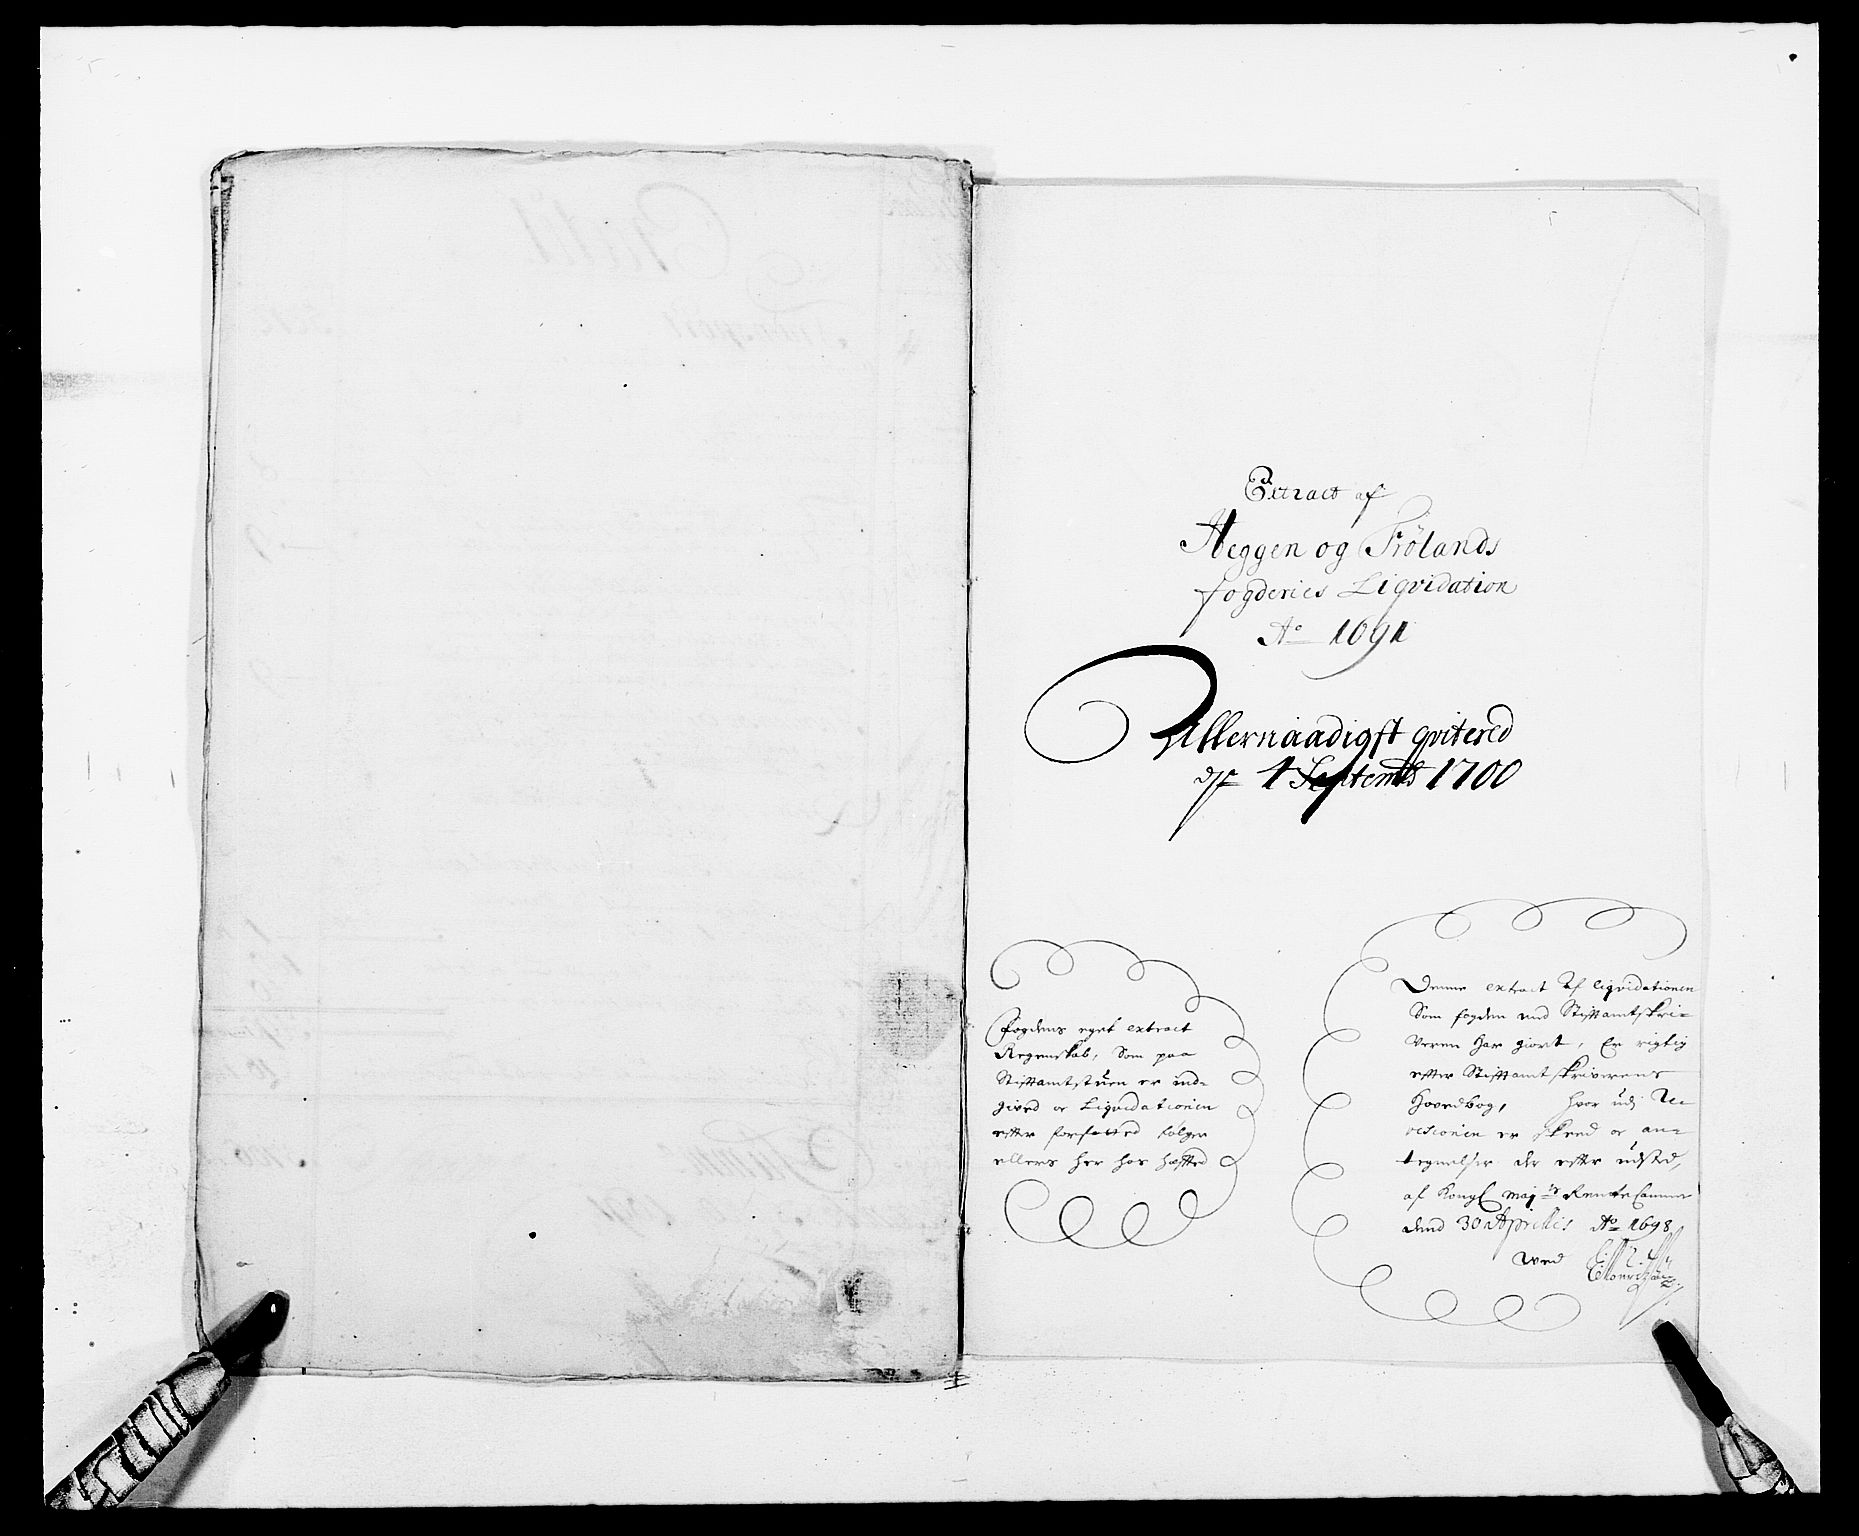 Extract af
Heggen og Frölands
fogderies Liqvidation
Ao 1691
Allernaadigst qvitered
dn 1 Septemb 1700
Fogdens eget extract
Regenskab, Som paa
Stiftamtstuen er ind-
gived oc Liqvidationen
efter forfatted følger
ellers her hos hæfted
Denne extract af liqvidationen
Som fogden med Stiftamtskri-
veren har giort, Er rigtig
efter Stiftamtskriverens
Hovedbog, hvor udj Re-
visionen er skeed oc an-
tegnelser der efter udsted,
af Kongl Maj ts Rente Cammer
dend 30 Aprilis Ao 1698
Ved